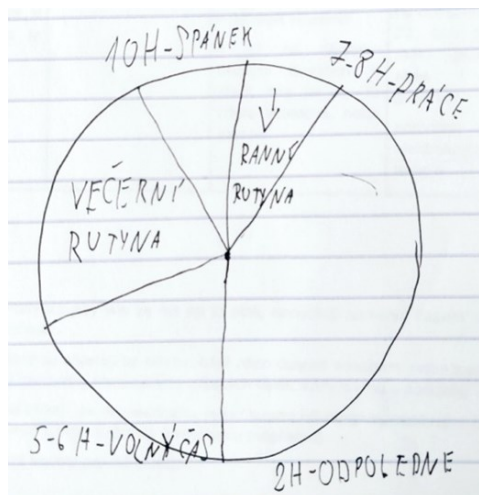 10H-SPÁNEK
7-8H-PRÁCE
RANNÍ
RUTYNA
VEČERNÍ
RUTYNA
5-6H-VOLNÝ ČAS
2H-ODPOLEDNE